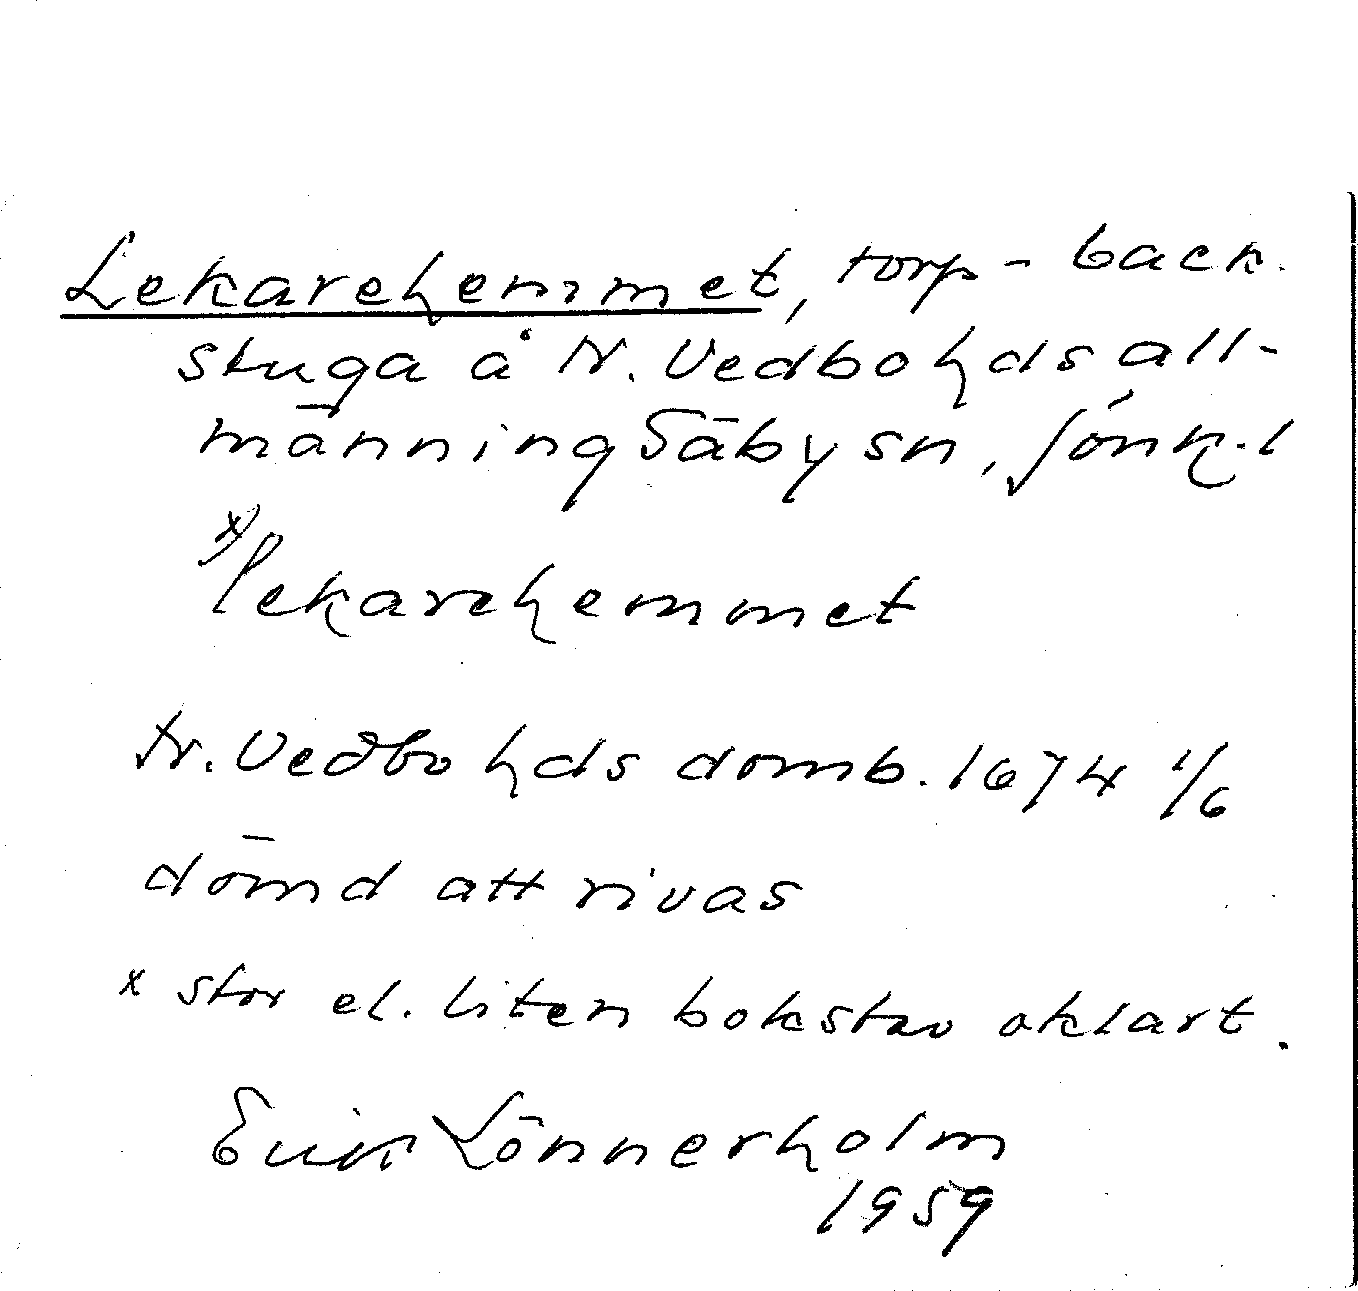 Lekarehemmet, torp - back.
stuga å N. Vedbo hds all-
männing Säby sn, Jönk. l
x) lekarehemmet
N. Vedbo hds domb. 1674 1/6
dömd att rivas
x stor el. liten bokstav oklart.
Erik Lönnerholm
1959